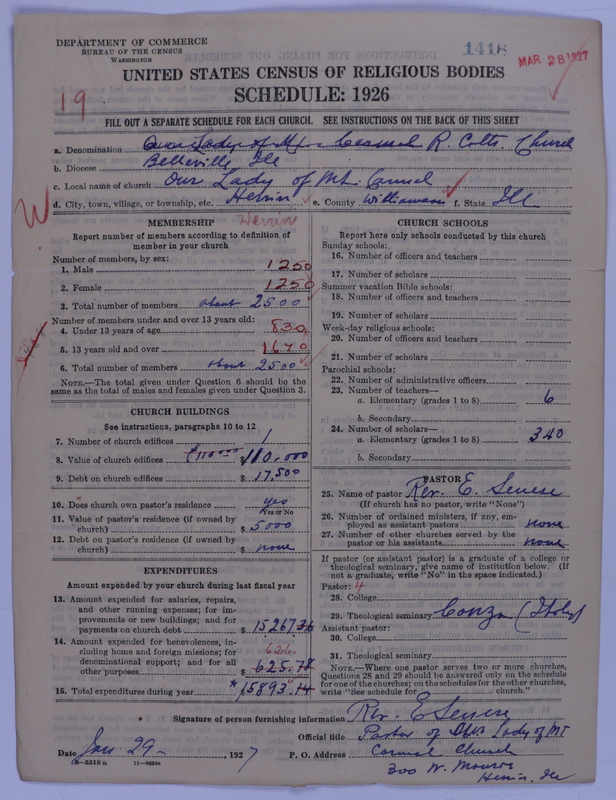 DEPARTMENT OF COMMERCE
BUREAU OF THE CENSUS
WASHINGTON
1418
MAR 28 1927
UNITED STATES CENSUS OF RELIGIOUS BODIES
SCHEDULE: 1926
19
FILL OUT A SEPARATE SCHEDULE FOR EACH CHURCH. SEE INSTRUCTIONS ON THE BACK OF THIS SHEET
a. Denomination Our Lady of Mt Carmel R. Cath. Church
b. Diocese Belleville, Ill
c. Local name of church Our Lady of Mt. Carmel
d. City, town, village, or township, etc. Herrin e. County Williamson f. State Ill
MEMBERSHIP Herrin
Report number of members according to definition of member in your church
Number of members, by sex:
1. Male 1250
2. Female 1250
3. Total number of members about 2500
Number of members under and over 13 years old:
4. Under 13 years of age 830
5. 13 years old and over 1670
6. Total number of members about 2500
NOTE.—The total given under Question 6 should be the same as the total of males and females given under Question 3.
CHURCH BUILDINGS
See instructions, paragraphs 10 to 12
7. Number of church edifices 1
8. Value of church edifices $110.000
9. Debt on church edifices $17,500
10. Does church own pastor's residence yes
Yes or No
11. Value of pastor's residence (if owned by church) $5000
12. Debt on pastor's residence (if owned by church) $none
EXPENDITURES
Amount expended by your church during last fiscal year
13. Amount expended for salaries, repairs, and other running expenses; for improvements or new buildings; and for payments on church debt $15267.36
14. Amount expended for benevolences, including home and foreign missions; for denominational support; and for all other purposes 626. $625.78
15. Total expenditures during year *15893.14
CHURCH SCHOOLS
Report here only schools conducted by this church
Sunday schools:
16. Number of officers and teachers
17. Number of scholars
Summer vacation Bible schools:
18. Number of officers and teachers
19. Number of scholars
Week-day religious schools:
20. Number of officers and teachers
21. Number of scholars
Parochial schools:
22. Number of administrative officers
23. Number of teachers—
a. Elementary (grades 1 to 8) 6
b. Secondary
24. Number of scholars—
a. Elementary (grades 1 to 8) 340
b. Secondary
PASTOR
25. Name of pastor Rev. E. Senese
(If church has no pastor, write "None")
26. Number of ordained ministers, if any, employed as assistant pastors none
27. Number of other churches served by the pastor or his assistants none
If pastor (or assistant pastor) is a graduate of a college or theological seminary, give name of institution below. (If not a graduate, write "No" in the space indicated.)
Pastor: 4
28. College
29. Theological seminary Conza (Italy)
Assistant pastor:
30. College
31. Theological seminary
NOTE.—Where one pastor serves two or more churches, Questions 28 and 29 should be answered only on the schedule for one of the churches; on the schedules for the other churches, write "See schedule for church."
Signature of person furnishing information Rev. E Senese
Official title Pastor of Our Lady of Mt
Date Jan 29- , 1927 P. O. Address Carmel Church
300 W. Monroe
Herrin, Ill
11—9024